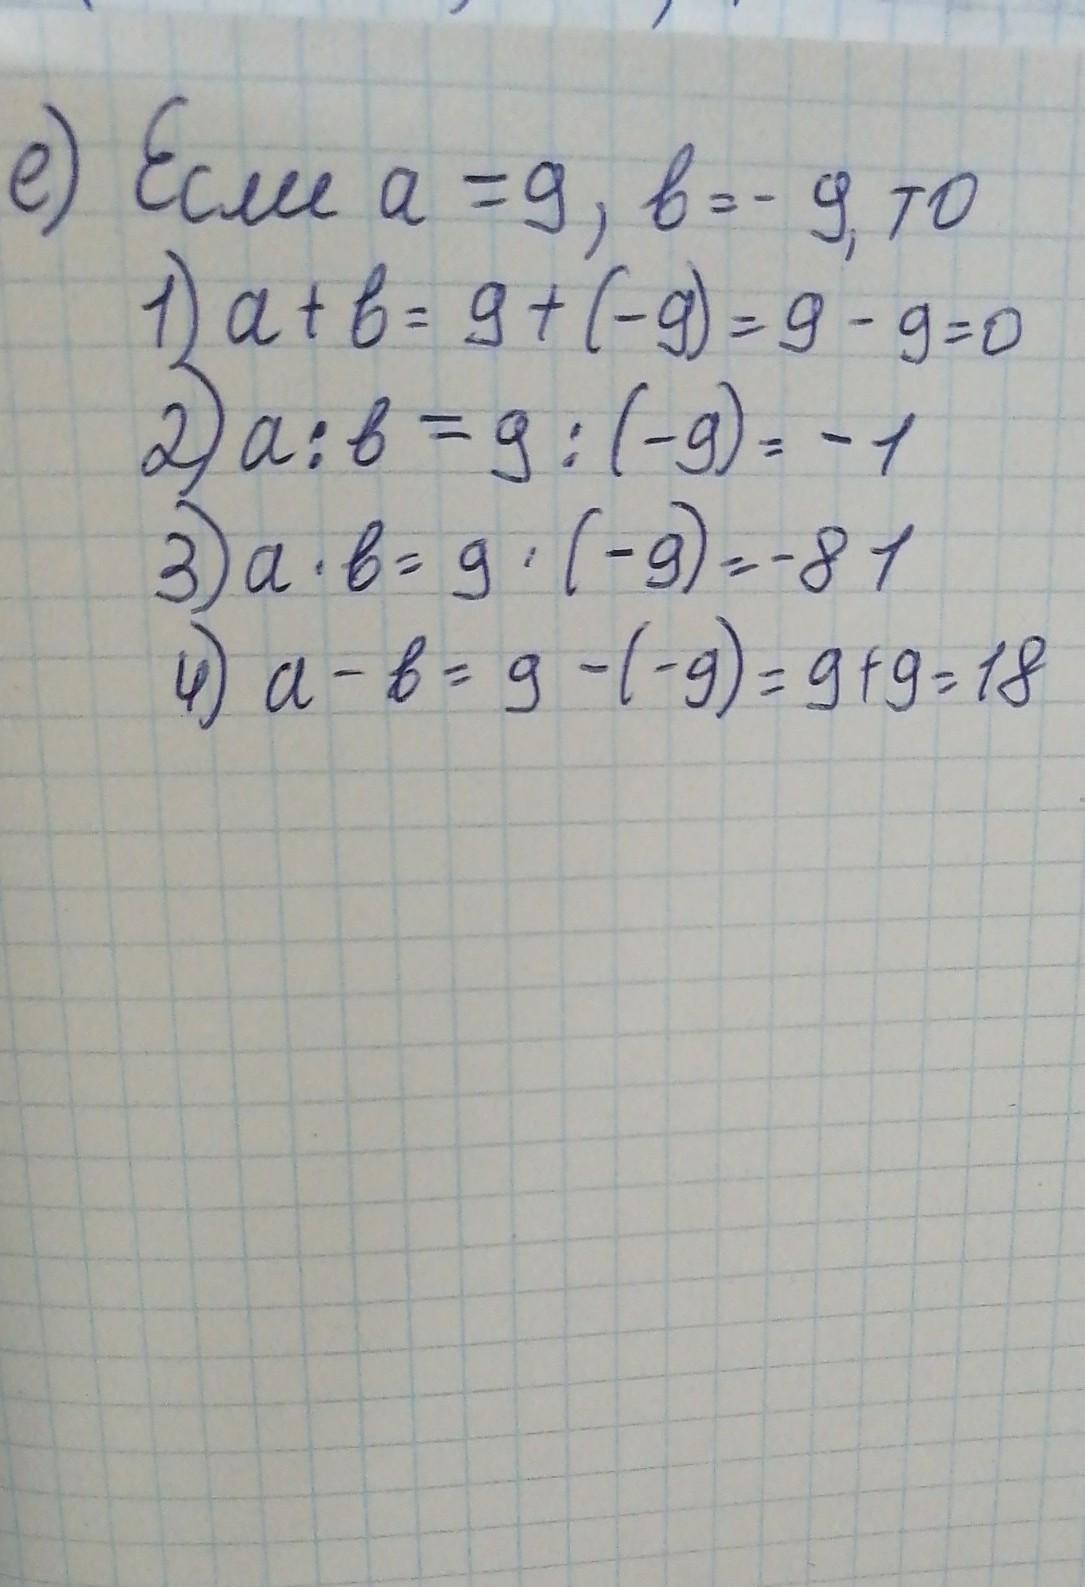 е) Если а = 9, в = - 9, то
1) а + в = 9 + (-9) = 9 - 9 = 0
2) а : в = 9 : (-9) = - 1
3) а · в = 9 · (-9) = - 81
4) а - в = 9 - (-9) = 9 + 9 = 18